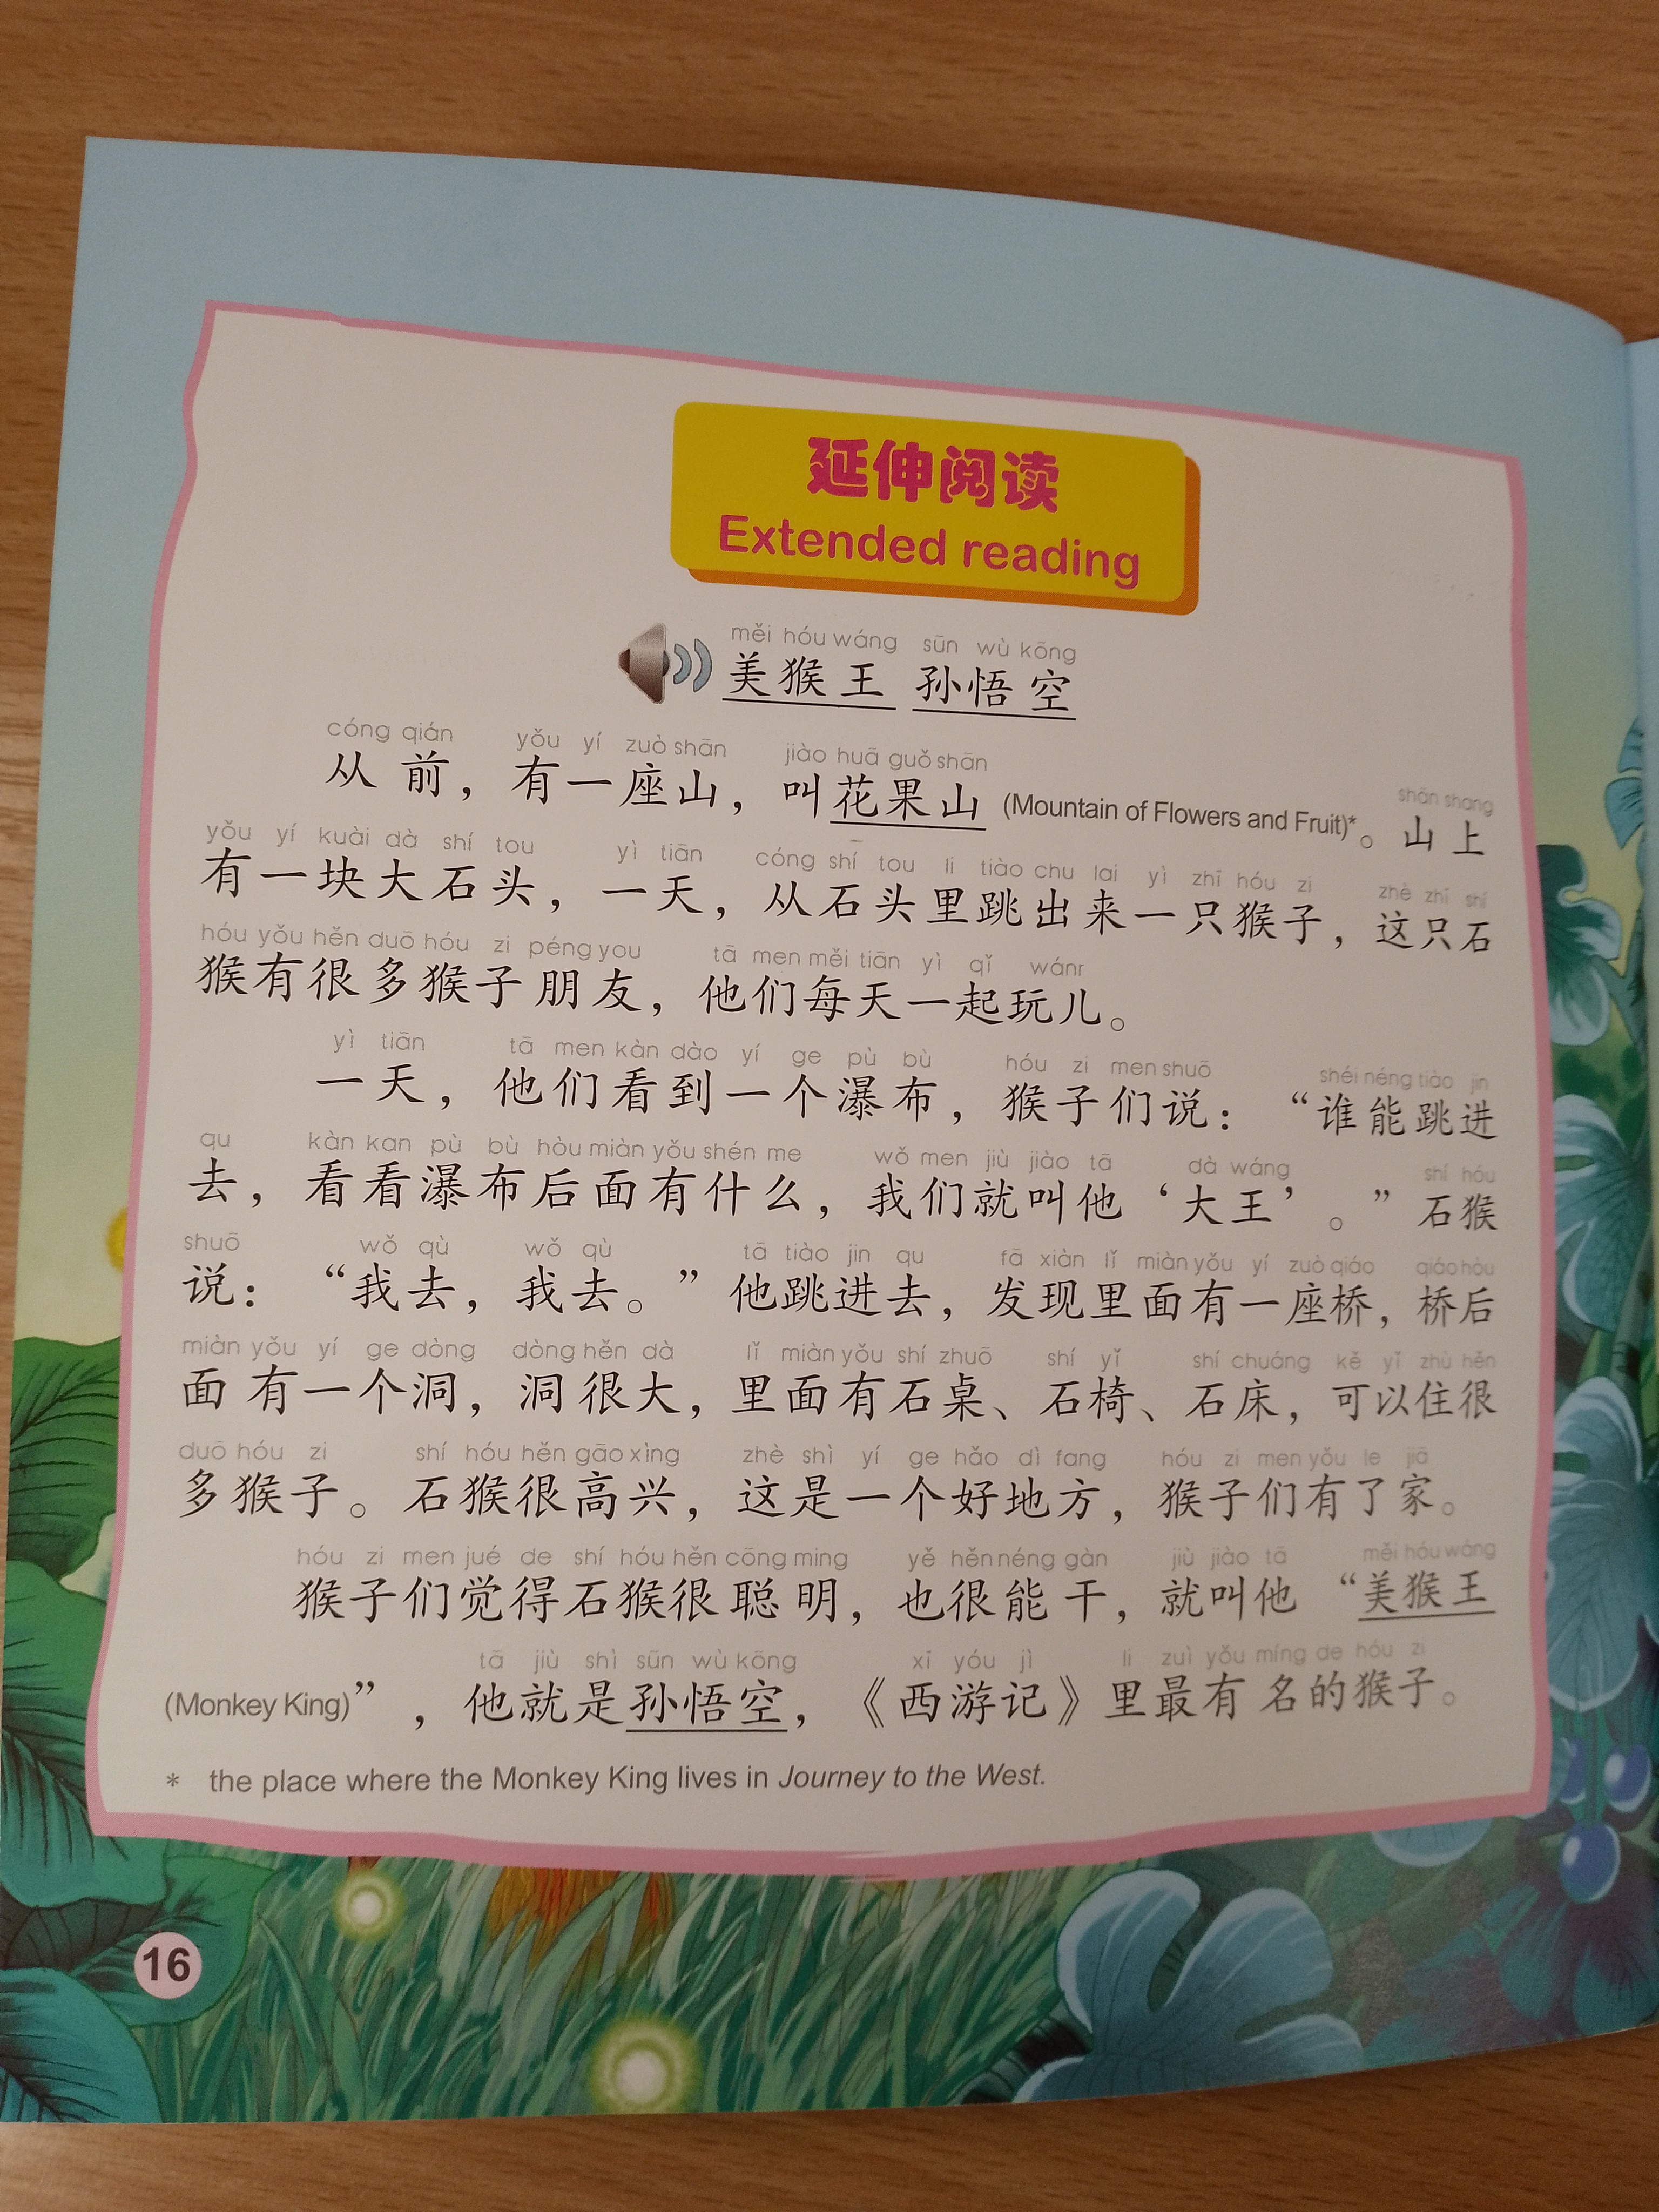 延伸阅读
Extended reading
měi hóu wáng sūn wù kōng
美猴王 孙悟空
cóng qián yǒu yí zuò shān jiào huā guǒ shān shān shang
从前，有一座山，叫花果山 (Mountain of Flowers and Fruit)*。山上
yǒu yí kuài dà shí tou yì tiān cóng shí tou li tiào chu lai yì zhī hóu zi zhè zhī shí
有一块大石头，一天，从石头里跳出来一只猴子，这只石
hóu yǒu hěn duō hóu zi péng you tā men měi tiān yì qǐ wánr
猴有很多猴子朋友，他们每天一起玩儿。
yì tiān tā men kàn dào yí ge pù bù hóu zi men shuō shéi néng tiào jin
一天，他们看到一个瀑布，猴子们说：“谁能跳进
qu kàn kan pù bù hòu miàn yǒu shén me wǒ men jiù jiào tā dà wáng shí hóu
去，看看瀑布后面有什么，我们就叫他‘大王’。”石猴
shuō wǒ qù wǒ qù tā tiào jin qu fā xiàn lǐ miàn yǒu yí zuò qiáo qiáo hòu
说：“我去，我去。”他跳进去，发现里面有一座桥，桥后
miàn yǒu yí ge dòng dòng hěn dà lǐ miàn yǒu shí zhuō shí yǐ shí chuáng kě yǐ zhù hěn
面有一个洞，洞很大，里面有石桌、石椅、石床，可以住很
duō hóu zi shí hóu hěn gāo xìng zhè shì yí ge hǎo dì fang hóu zi men yǒu le jiā
多猴子。石猴很高兴，这是一个好地方，猴子们有了家。
hóu zi men jué de shí hóu hěn cōng ming yě hěn néng gàn jiù jiào tā měi hóu wáng
猴子们觉得石猴很聪明，也很能干，就叫他“美猴王
tā jiù shì sūn wù kōng xī yóu jì li zuì yǒu míng de hóu zi
(Monkey King)”，他就是孙悟空，《西游记》里最有名的猴子。
* the place where the Monkey King lives in Journey to the West.
16